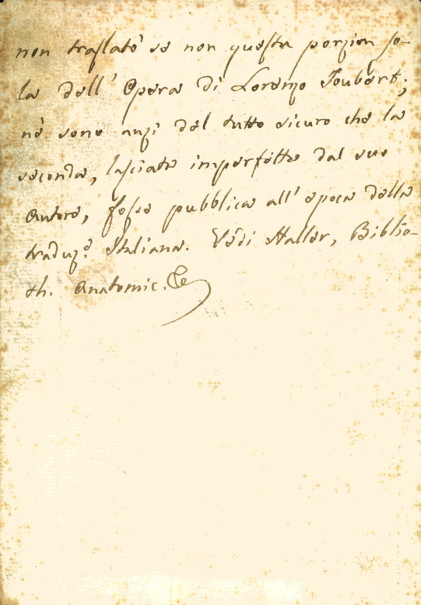 non traslatò se non questa porzion so-
la dell' Opera di Lorenzo Joubert;
nè sono anzi del tutto sicuro che la
seconda, lasciata imperfetta dal suo
Autore, fosse pubblica all' epoca della
traduz.e Italiana. Vedi Haller, Biblio-
th. Anatomic. &c